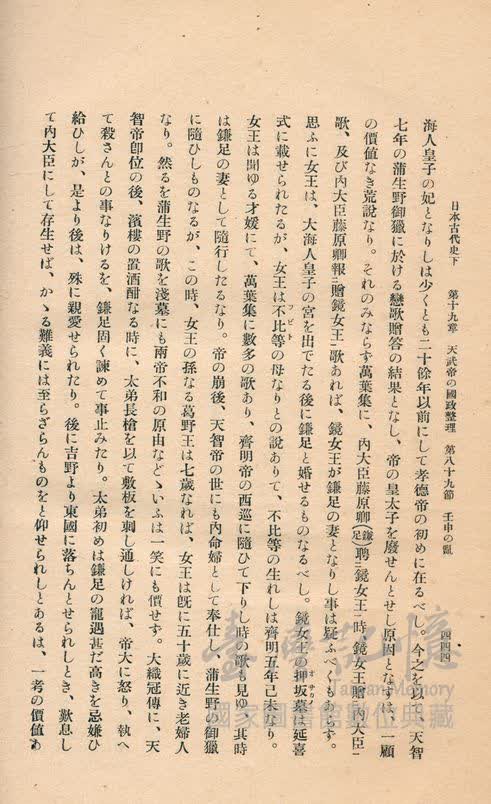 日本古代史下　第十九章　天武帝の國政整理　第八十九節　壬申の亂
四四四
海人皇子の妃となりしは少くとも二十餘年以前にして孝德帝の初めに在るべし。今之を以て、天智
七年の蒲生野御獵に於ける戀歌贈答の結果となし、帝の皇太子を廢せんとせし原因となすは、一顧
の價値なき荒說なり。それのみならず萬葉集に、內大臣藤原卿(鎌足)聘二鏡女王一時、鏡女王贈二內大臣一
歌、及び內大臣藤原卿報二贈鏡女王一歌あれば、鏡女王が鎌足の妻となりし事は疑ふべくもあらず。
思ふに女王は、大海人皇子の宮を出でたる後に鎌足と婚せるものなるべし。鏡女王の押坂墓は延喜
オサカノ
式に載せられたるが、女王は不比等の母なりとの說ありて、不比等の生れしは齊明五年己未なり。
フビト
女王は聞ゆる才媛にて、萬葉集に數多の歌あり、齊明帝の西巡に隨ひて下りし時の歌も見ゆ、其時
は鎌足の妻として隨行したるなり。帝の崩後、天智帝の世にも內命婦として奉仕し、蒲生野の御獵
に隨ひしものなるが、この時、女王の孫なる葛野王は七歲なれば、女王は既に五十歲に近き老婦人
なり。然るを蒲生野の歌を淺墓にも兩帝不和の原由などゝいふは一笑にも價せず。大織冠傳に、天
智帝卽位の後、濱樓の置酒酣なる時に、太弟長槍を以て敷板を刺し通しければ、帝大に怒り、執へ
て殺さんとの事なりけるを、鎌足固く諫めて事止みたり。太弟初めは鎌足の寵遇甚だ高きを忌嫌ひ
給ひしが、是より後は、殊に親愛せられたり。後に吉野より東國に落ちんとせられしとき、歎息し
て內大臣にして存生せば、かゝる難義には至らざらんものをと仰せられしとあるは、一考の價値あ
臺灣記憶
Taiwan Memory
國家圖書館數位典藏